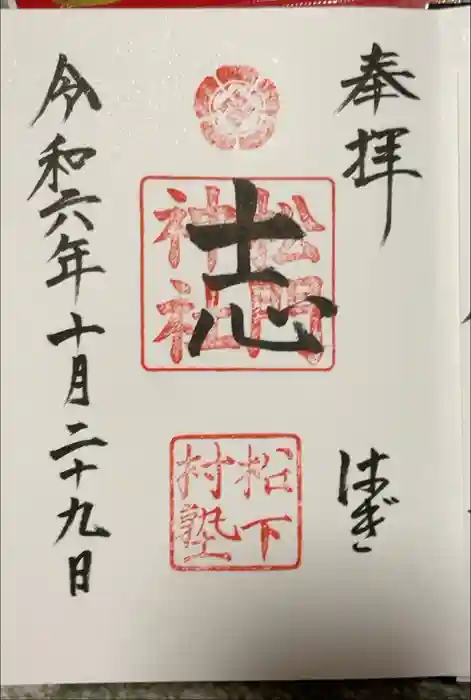 奉拝
はぎ
松陰神社
志
松下村塾
令和六年十月二十九日